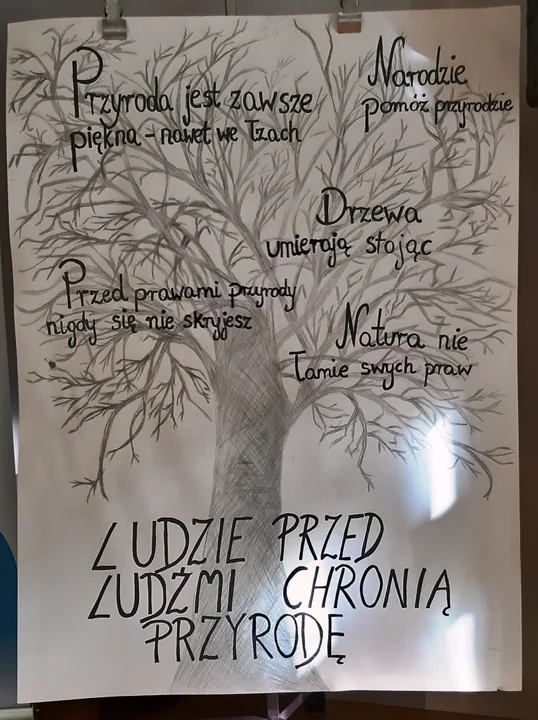 Przyroda jest zawsze
piękna - nawet we łzach
Narodzie
pomóż przyrodzie
Drzewa
umierają stojąc
Przed prawami przyrody
nigdy się nie skryjesz
Natura nie
łamie swych praw
LUDZIE PRZED
LUDŹMI CHRONIĄ
PRZYRODĘ